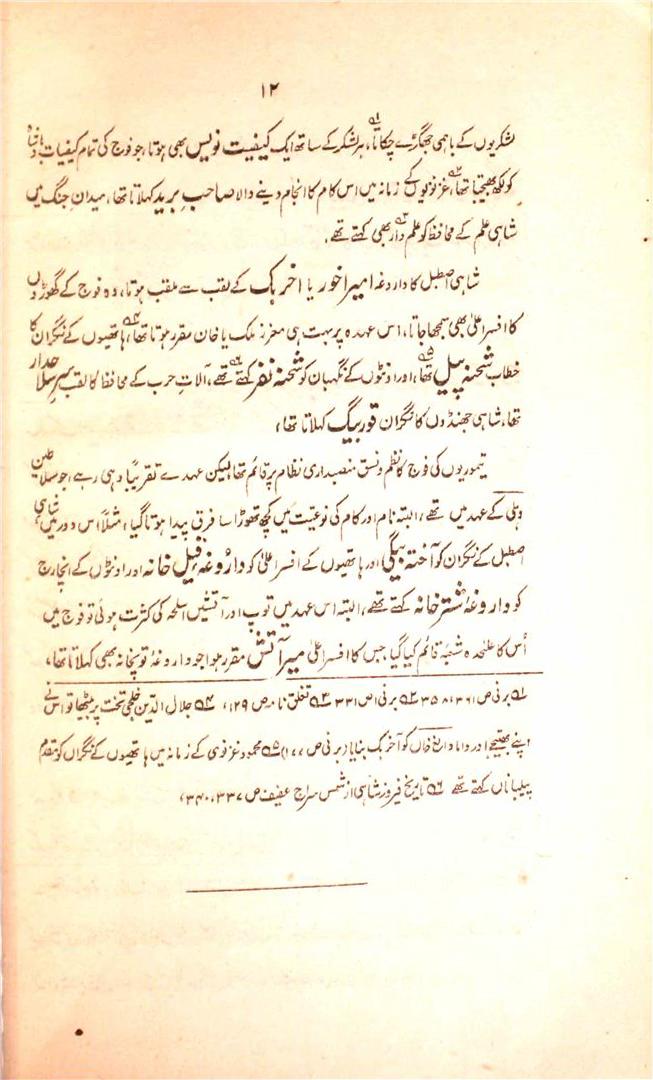 ۱۲
لشکریوں کے باہمی جھگڑے چکاتا،۱؎ ہر لشکر کے ساتھ ایک کیفیت نویس بھی ہوتا، جو فوج کی تمام کیفیات بادشاہ
کو لکھ بھیجتا تھا،۲؎ غزنویوں کے زمانہ میں اس کام کا انجام دینے والا صاحب برید کہلاتا تھا، میدانِ جنگ میں
شاہی علم کے محافظ کو علم دار۳؎ بھی کہتے تھے.
شاہی اصطبل کا داروغہ امیر اخور یا اخر بک کے لقب سے ملقب ہوتا، وہ فوج کے گھوڑوں
کا افسر اعلیٰ بھی سمجھا جاتا، اس عہدہ پر بہت ہی معزز ملک یا خان مقرر ہوتا تھا،۴؎ ہاتھیوں کے نگران کا
خطاب شحنہ پیل۵؎ تھا، اور اونٹوں کے نگہبان کو شحنہ نفر۶؎ کہتے تھے، آلاتِ حرب کے محافظ کا لقب سر سلاحدار
تھا، شاہی جھنڈوں کا نگران قور بیگ کہلاتا تھا،
تیموریوں کی فوج کا نظم و نسق منصبداری نظام پر قائم تھا، لیکن عہدے تقریباً وہی رہے، جو سلاطین
دہلی کے عہد میں تھے، البتہ نام اور کام کی نوعیت میں کچھ تھوڑا سا فرق پیدا ہوتا گیا، مثلاً اس دور میں شاہی
اصطبل کے نگران کو آختہ بیگی اور ہاتھیوں کے افسر اعلیٰ کو داروغہ فیل خانہ اور اونٹوں کے انچارج
کو داروغہ شتر خانہ کہتے تھے، البتہ اس عہد میں توپ اور آتشیں اسلحہ کی کثرت ہوئی تو فوج میں
اُس کا علٰحدہ شعبہ قائم کیا گیا، جس کا افسر اعلیٰ میر آتش مقرر ہوا جو داروغہ توپخانہ بھی کہلاتا تھا،
۱؎ برنی ص ۳۶۱، ۳۵۸ ۲؎ برنی ص ۳۳۱ ۳؎ تغلق نامہ ص ۱۲۹، ۴؎ جلال الدین خلجی تخت پر بیٹھا تو اس نے
اپنے بھتیجے اور داماد خاں کو آخر بک بنایا (برنی ص ۱۷۷) ۵؎ محمود غزنوی کے زمانہ میں ہاتھیوں کے نگراں کو مقدم
پیلباناں کہتے تھے ۶؎ تاریخ فیروز شاہی از شمس سراج عفیف ص ۳۳۷، ۳۴۰،